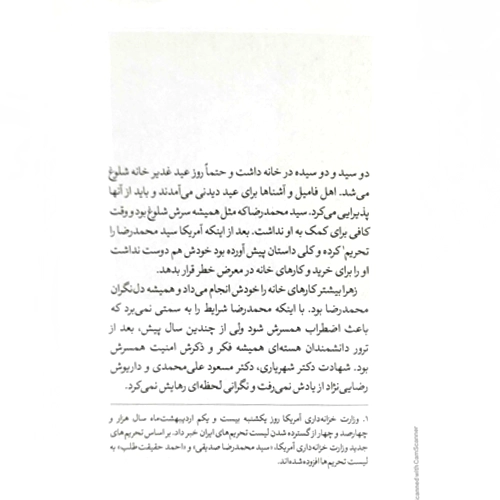 دو سید و دو سیده در خانه داشت و حتماً روز عید غدیر خانه شلوغ
می‌شد. اهل فامیل و آشناها برای عید دیدنی می‌آمدند و باید از آنها
پذیرایی می‌کرد. سید محمدرضا که مثل همیشه سرش شلوغ بود و وقت
کافی برای کمک به او نداشت. بعد از اینکه آمریکا سید محمدرضا را
تحریم۱ کرده و کلی داستان پیش آورده بود خودش هم دوست نداشت
او را برای خرید و کارهای خانه در معرض خطر قرار بدهد.
زهرا بیشتر کارهای خانه را خودش انجام می‌داد و همیشه دل‌نگران
محمدرضا بود. با اینکه محمدرضا شرایط را به سمتی نمی‌برد که
باعث اضطراب همسرش شود ولی از چندین سال پیش، بعد از
ترور دانشمندان هسته‌ای همیشه فکر و ذکرش امنیت همسرش
بود. شهادت دکتر شهریاری، دکتر مسعود علی‌محمدی و داریوش
رضایی‌نژاد از یادش نمی‌رفت و نگرانی لحظه‌ای رهایش نمی‌کرد.
۱. وزارت خزانه‌داری آمریکا روز یکشنبه بیست و یکم اردیبهشت‌ماه سال هزار و
چهارصد و چهار از گسترده شدن لیست تحریم‌های ایران خبر داد. بر اساس تحریم‌های
جدید وزارت خزانه‌داری آمریکا، «سید محمدرضا صدیقی» و «احمد حقیقت‌طلب» به
لیست تحریم‌ها افزوده شده‌اند.
canned with CamScanner